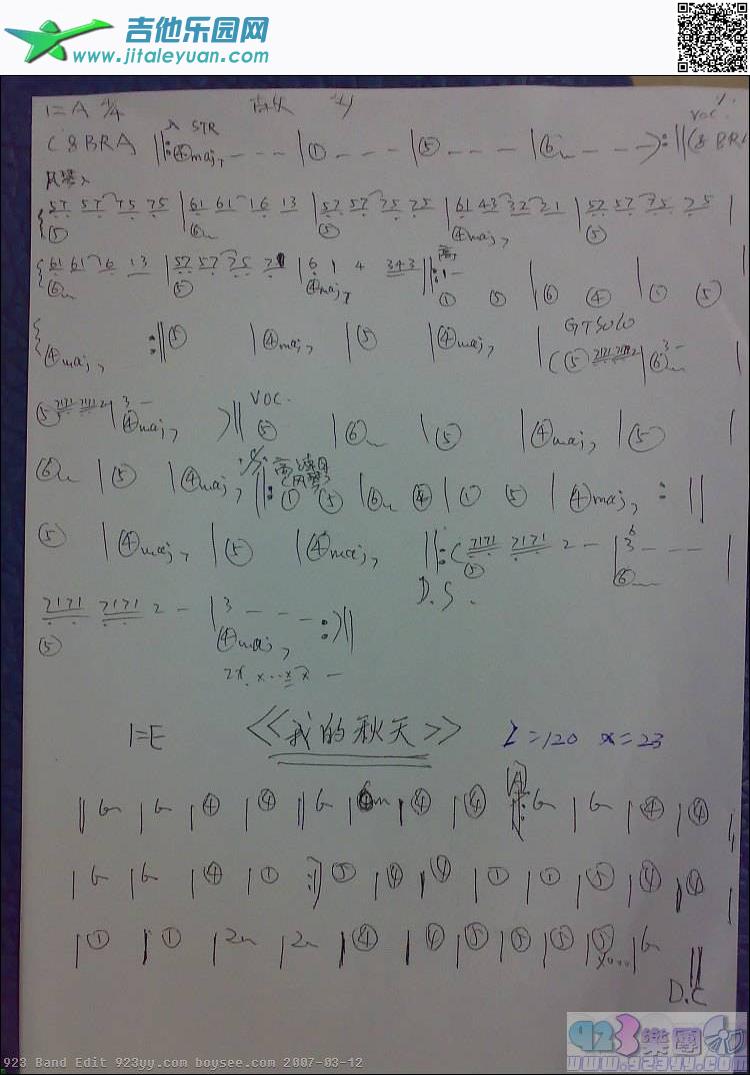 吉他乐园网
www.jitaleyuan.com
1=A 4/4
voc.
STR
(8BRA ‖: ④maj7 - - - | ① - - - | ⑤ - - - | ⑥m - - - ) :‖ (8 BRA
风琴入
57 57 75 75 | 61 61 16 13 | 57 57 75 25 | 61 43 32 21 | 57 57 75 25 |
⑤ ⑥m ⑤ ④maj7 ⑤
61 61 16 13 | 57 57 75 71 | 6 1 4 343 ‖: 1 -
⑥m ⑤ ④maj7 ① ⑤ | ⑥ ④ | ① ⑤
GTSOLO
④maj7 :‖ ⑤ | ④maj7 | ⑤ | ④maj7 | (⑤ 7171 7171 2 | ⑥m 3 -
⑤ 7171 7171 2 | 3 - ④maj7 )‖ VOC. ⑤ | ⑥m | ⑤ | ④maj7 | ⑤
⑥m | ⑤ | ④maj7 ‖: ① ⑤ | ⑥m ④ | ① ⑤ | ④maj7 :‖
⑤ | ④maj7 | ⑤ | ④maj7 ‖: ( 7171 7171 2 - | 3 - - - |
⑤ ⑥m
D.S.
7171 7171 2 - | 3 - - - :)‖
⑤ ④maj7
2x. x ··x x -
1=E 《我的秋天》 Z=120 x=23
‖ 6m | 6m | ④ | ④ ‖ 6m | 6m | ④ | ④ | A ‖: 6m | 6m | ④ | ④ |
| 6m | 6m | ④ | ① :‖ ⑤ | ④ | ④ | ① | ① | ⑤ | ④ | ④ |
| ① | ① | 2m | 2m | ④ | ④ | ⑤ | ⑤ | ⑤ | ⑤ | 6m ‖
D.C
923 Band Edit 923yy.com boysee.com 2007-03-12
923樂團
www.923yy.com